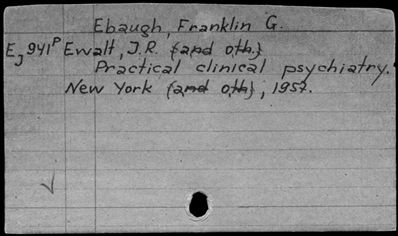 Ebaugh, Franklin G.
EJ941P Ewalt, J.R. (and oth.)
Practical clinical psychiatry.
New York (and oth), 1957.